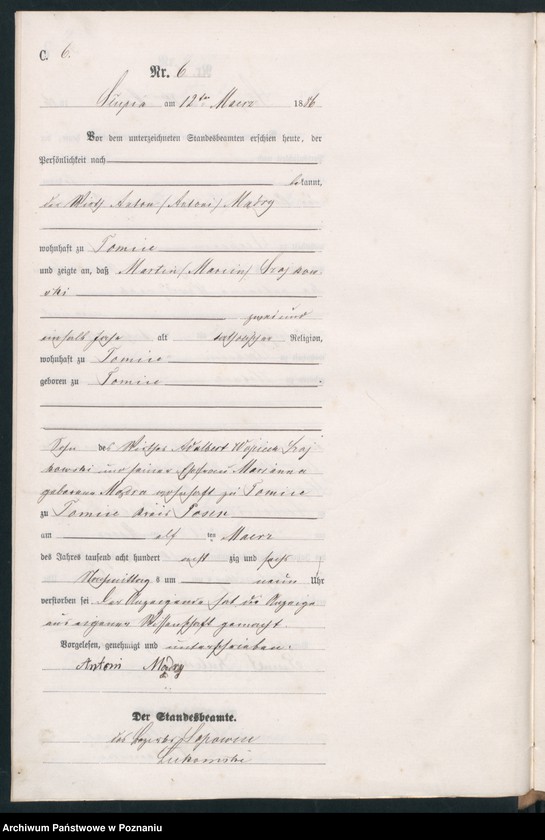 C. 6.
Nr. 6
Słupia am 12ten Maerz 1886
Vor dem unterzeichneten Standesbeamten erschien heute, der
Persönlichkeit nach
bekannt,
der Wirth Anton /Antoni/ Mądry
wohnhaft zu Tomice
und zeigte an, daß Martin /Marcin/
ski
zwei und
einhalb Jahre alt katholischer Religion,
wohnhaft zu Tomice
geboren zu Tomice
Sohn des Wirthes Adalbert
kowski und seiner Ehefrau Marianna
geborene Mądra wohnhaft zu Tomice
zu Tomice Kreis Posen
am elf ten Maerz
des Jahres tausend acht hundert acht zig und sechs
Nachmittags um neun Uhr
verstorben sei Der Anzeigende hat die Anzeige
aus eigener Wissenschaft gemacht.
Vorgelesen, genehmigt und unterschrieben.
Antoni Mądry
Der Standesbeamte.
Łukomski
Archiwum Państwowe w Poznaniu